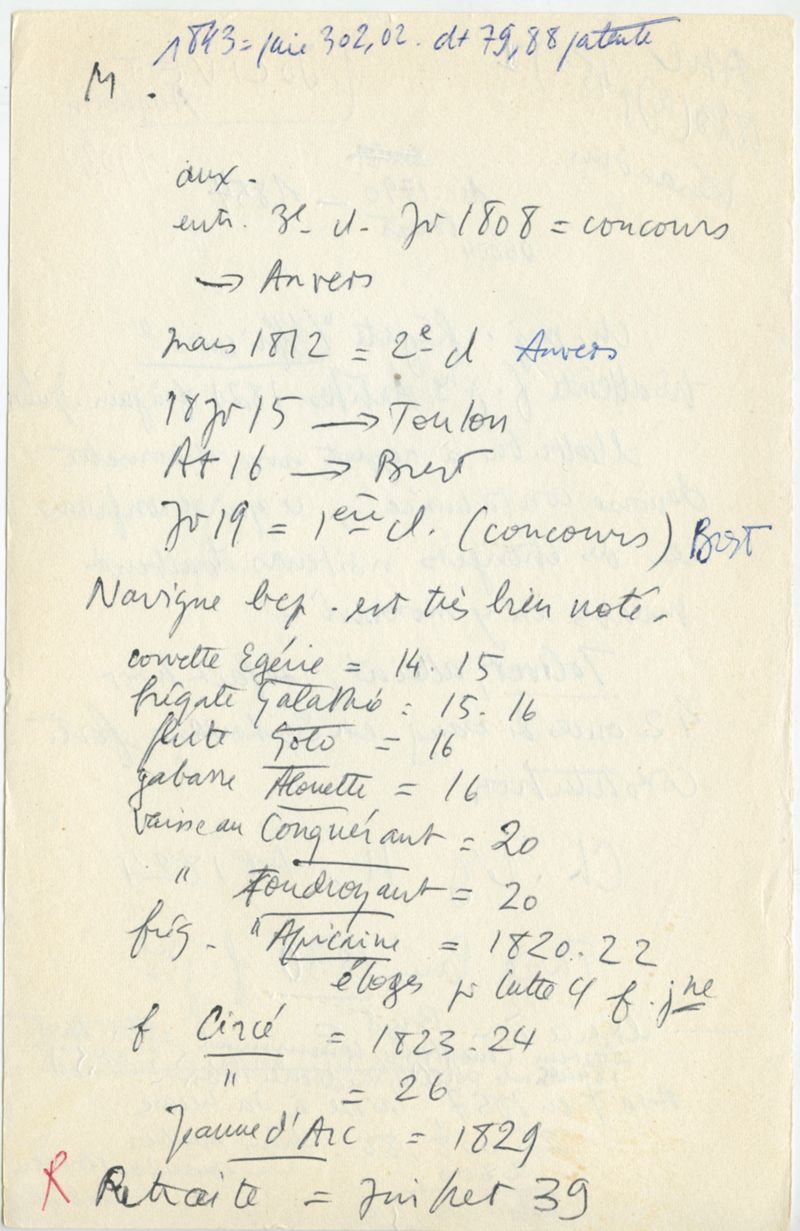 1843 = paie 302,02. dt 79,88 patente
M.
aux.
entr. 3e d. Jr 1808 = concours
→ Anvers
mars 1812 = 2e cl Anvers
18 Jr 15 → Toulon
At 16 → Brest
Jr 19 = 1ère cl. (concours) Brest
Navigue bcp. est très bien noté.
corvette Egérie = 14 15
frégate Galathée = 15. 16
flûte Golo = 16
gabarre Alouette = 16
vaisseau Conquérant = 20
" Foudroyant = 20
frég. "Africaine = 1820. 22
éloges pr lutte c/ f. jne
f Circé = 1823. 24
" = 26
Jeanne d'Arc = 1829
R Retraite = Juillet 39